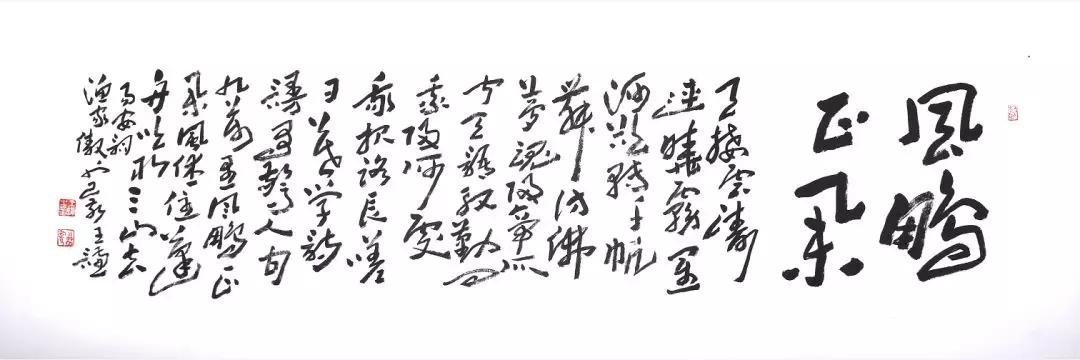 風鵬
正舉
天接雲濤
連曉霧星
河欲轉千帆
舞仿佛
夢魂歸帝所
聞天語殷勤問
我歸何處
我報路長嗟
日暮學詩
謾有驚人句
九萬里風鵬正
舉風休住蓬
舟吹取三山去
易安詞
漁家傲 己亥 王